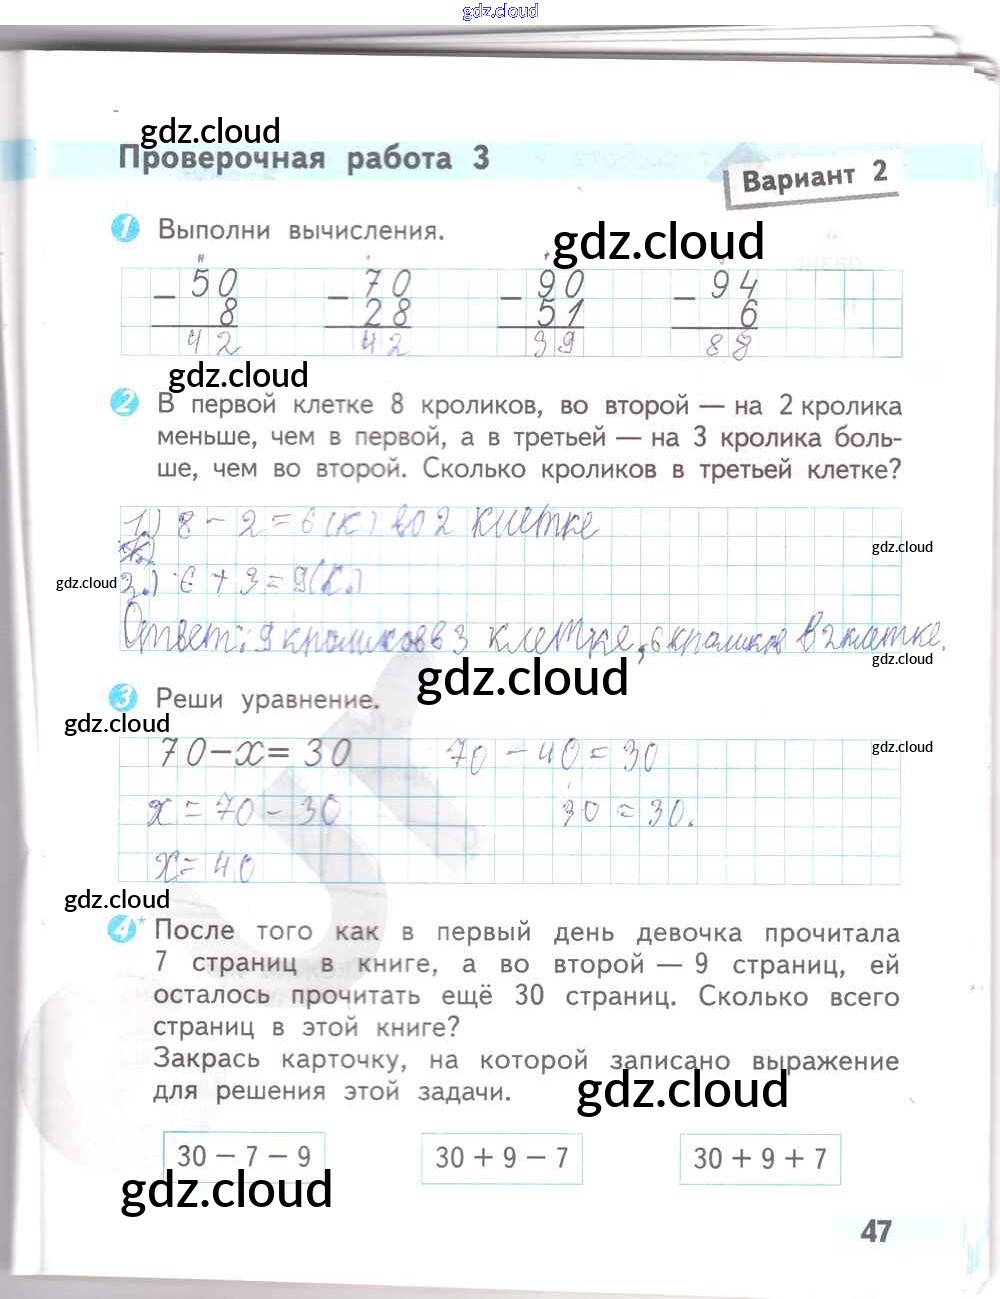 gdz.cloud
gdz.cloud
Проверочная работа 3
Вариант 2
1 Выполни вычисления.
gdz.cloud
− 50 − 70 − 90 − 94
8 28 51 6
42 42 39 88
gdz.cloud
2 В первой клетке 8 кроликов, во второй — на 2 кролика
меньше, чем в первой, а в третьей — на 3 кролика боль-
ше, чем во второй. Сколько кроликов в третьей клетке?
1.) 8 − 2 = 6 (к) во 2 клетке
gdz.cloud
gdz.cloud
2.) 6 + 3 = 9 (к.)
Ответ: 9 кроликов в 3 клетке, 6 кроликов в 2 клатке.
gdz.cloud
gdz.cloud
3 Реши уравнение.
gdz.cloud
70 − х = 30 70 − 40 = 30
gdz.cloud
х = 70 − 30 30 = 30.
х = 40
gdz.cloud
4* После того как в первый день девочка прочитала
7 страниц в книге, а во второй — 9 страниц, ей
осталось прочитать ещё 30 страниц. Сколько всего
страниц в этой книге?
Закрась карточку, на которой записано выражение
для решения этой задачи.
gdz.cloud
30 − 7 − 9 30 + 9 − 7 30 + 9 + 7
gdz.cloud
47